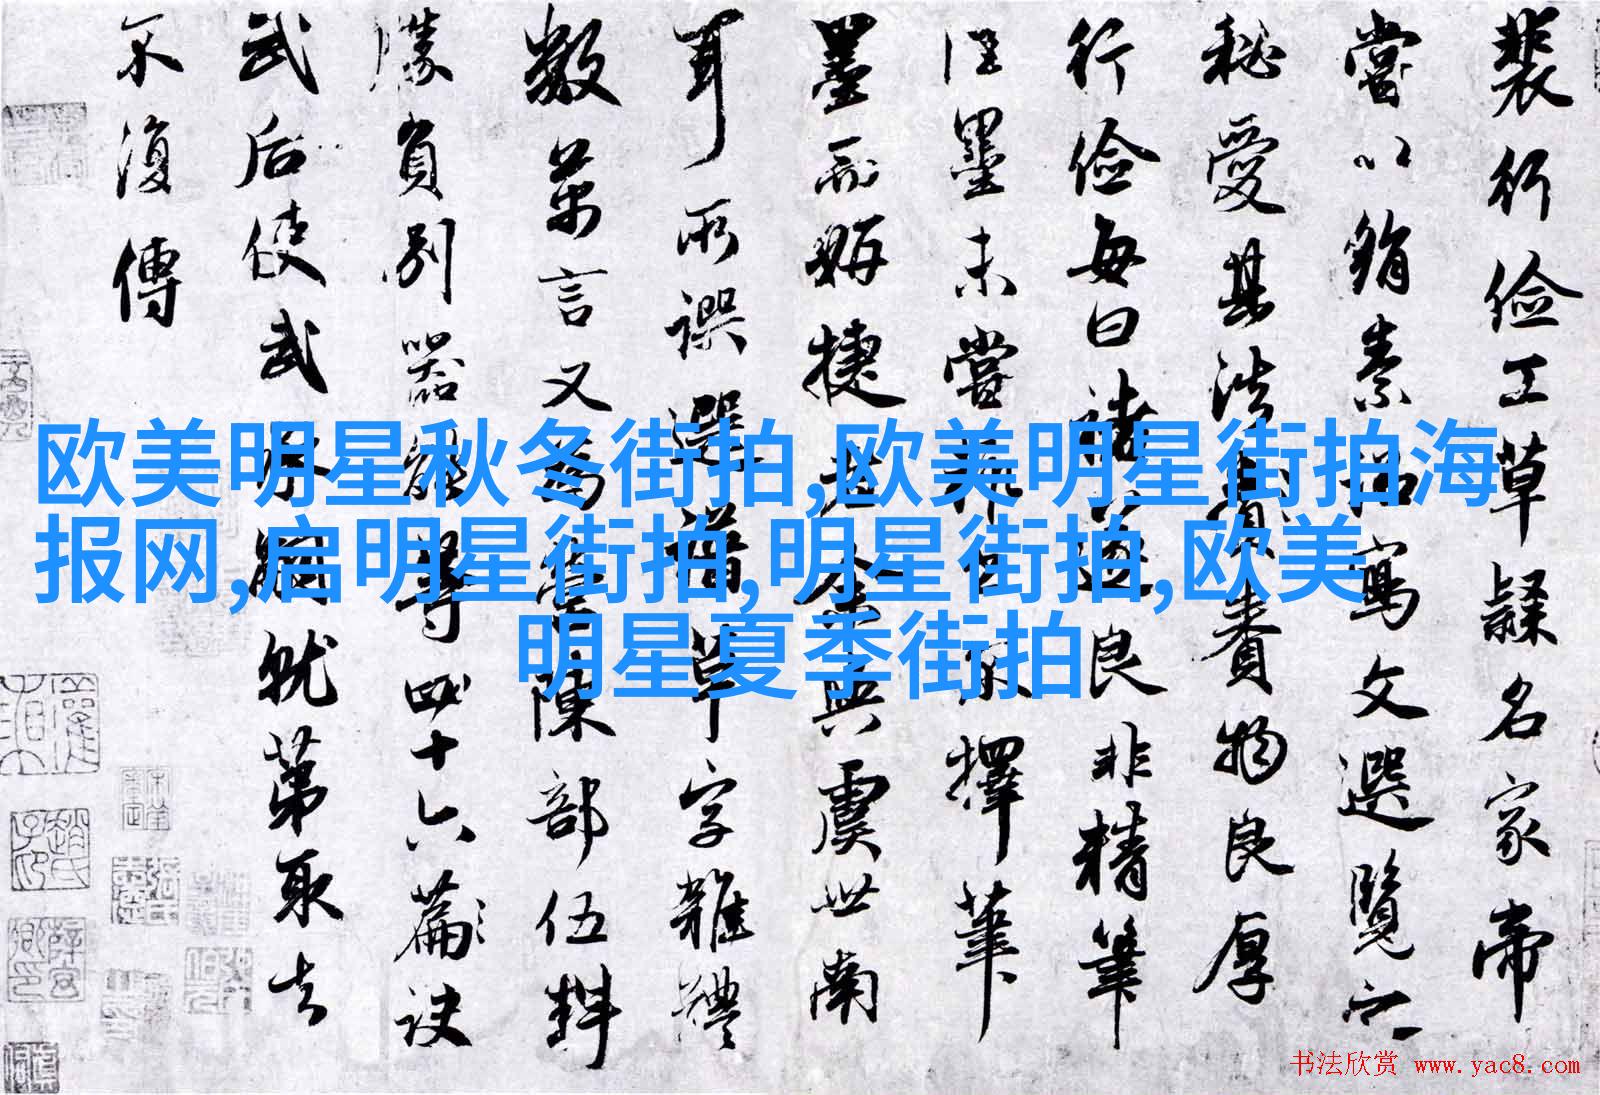 裴行俭工草隸名家帝
嘗以絹素詔寫文選覽之
秘愛其法賚物良厚
行俭每曰褚遂良非精筆
佳墨未嘗擇筆
墨而妍捷者余與虞世南
耳所譔選譜草字雜體
數萬言又為營陳部伍料
勝負別器能等四十六篇訣
武后使武承嗣就第取去
不復傳
欧美明星秋冬街拍,欧美明星街拍海
报网,启明星街拍,明星街拍,欧美
明星夏季街拍
书法欣赏 www.yac8.com